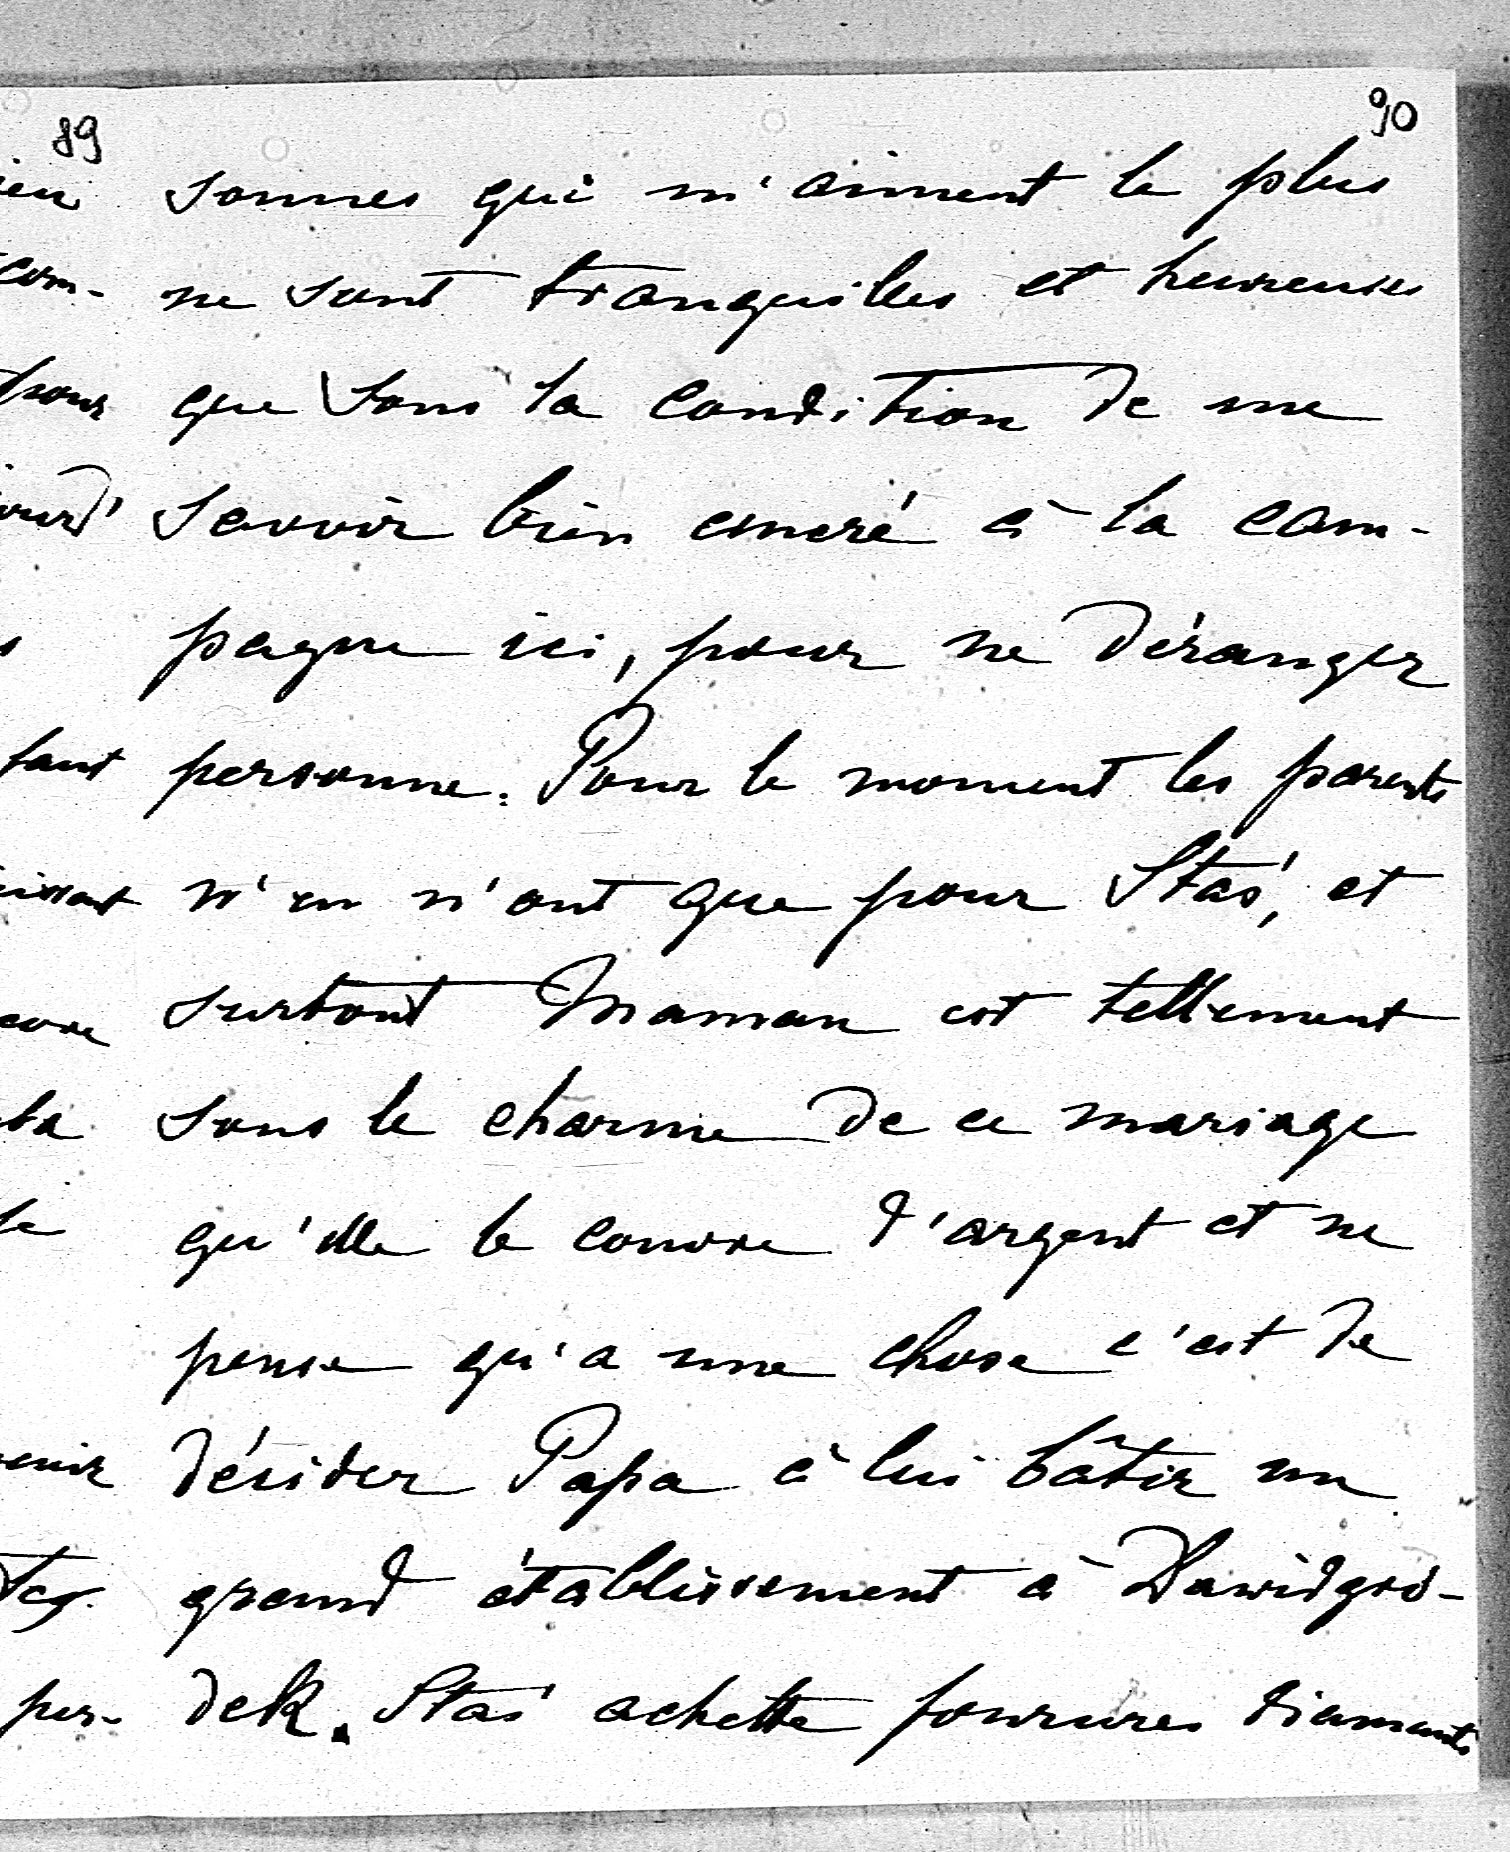 89
90
sonnes qui m'aiment le plus
ne sont tranquilles et heureuses
que sous la condition de me
savoir bien encré à la cam-
pagne ici, pour ne déranger
personne. Pour le moment les parents
n'en n'ont que pour Staś, et
surtout Maman est tellement
sous le charme de ce mariage
qu'elle le couvre d'argent et ne
pense qu'a une chose c'est de
désider Papa à lui bâtir un
grand établissement à Dawidgró-
dek. Staś achette fourures diamants
com-
pour
tant
per-